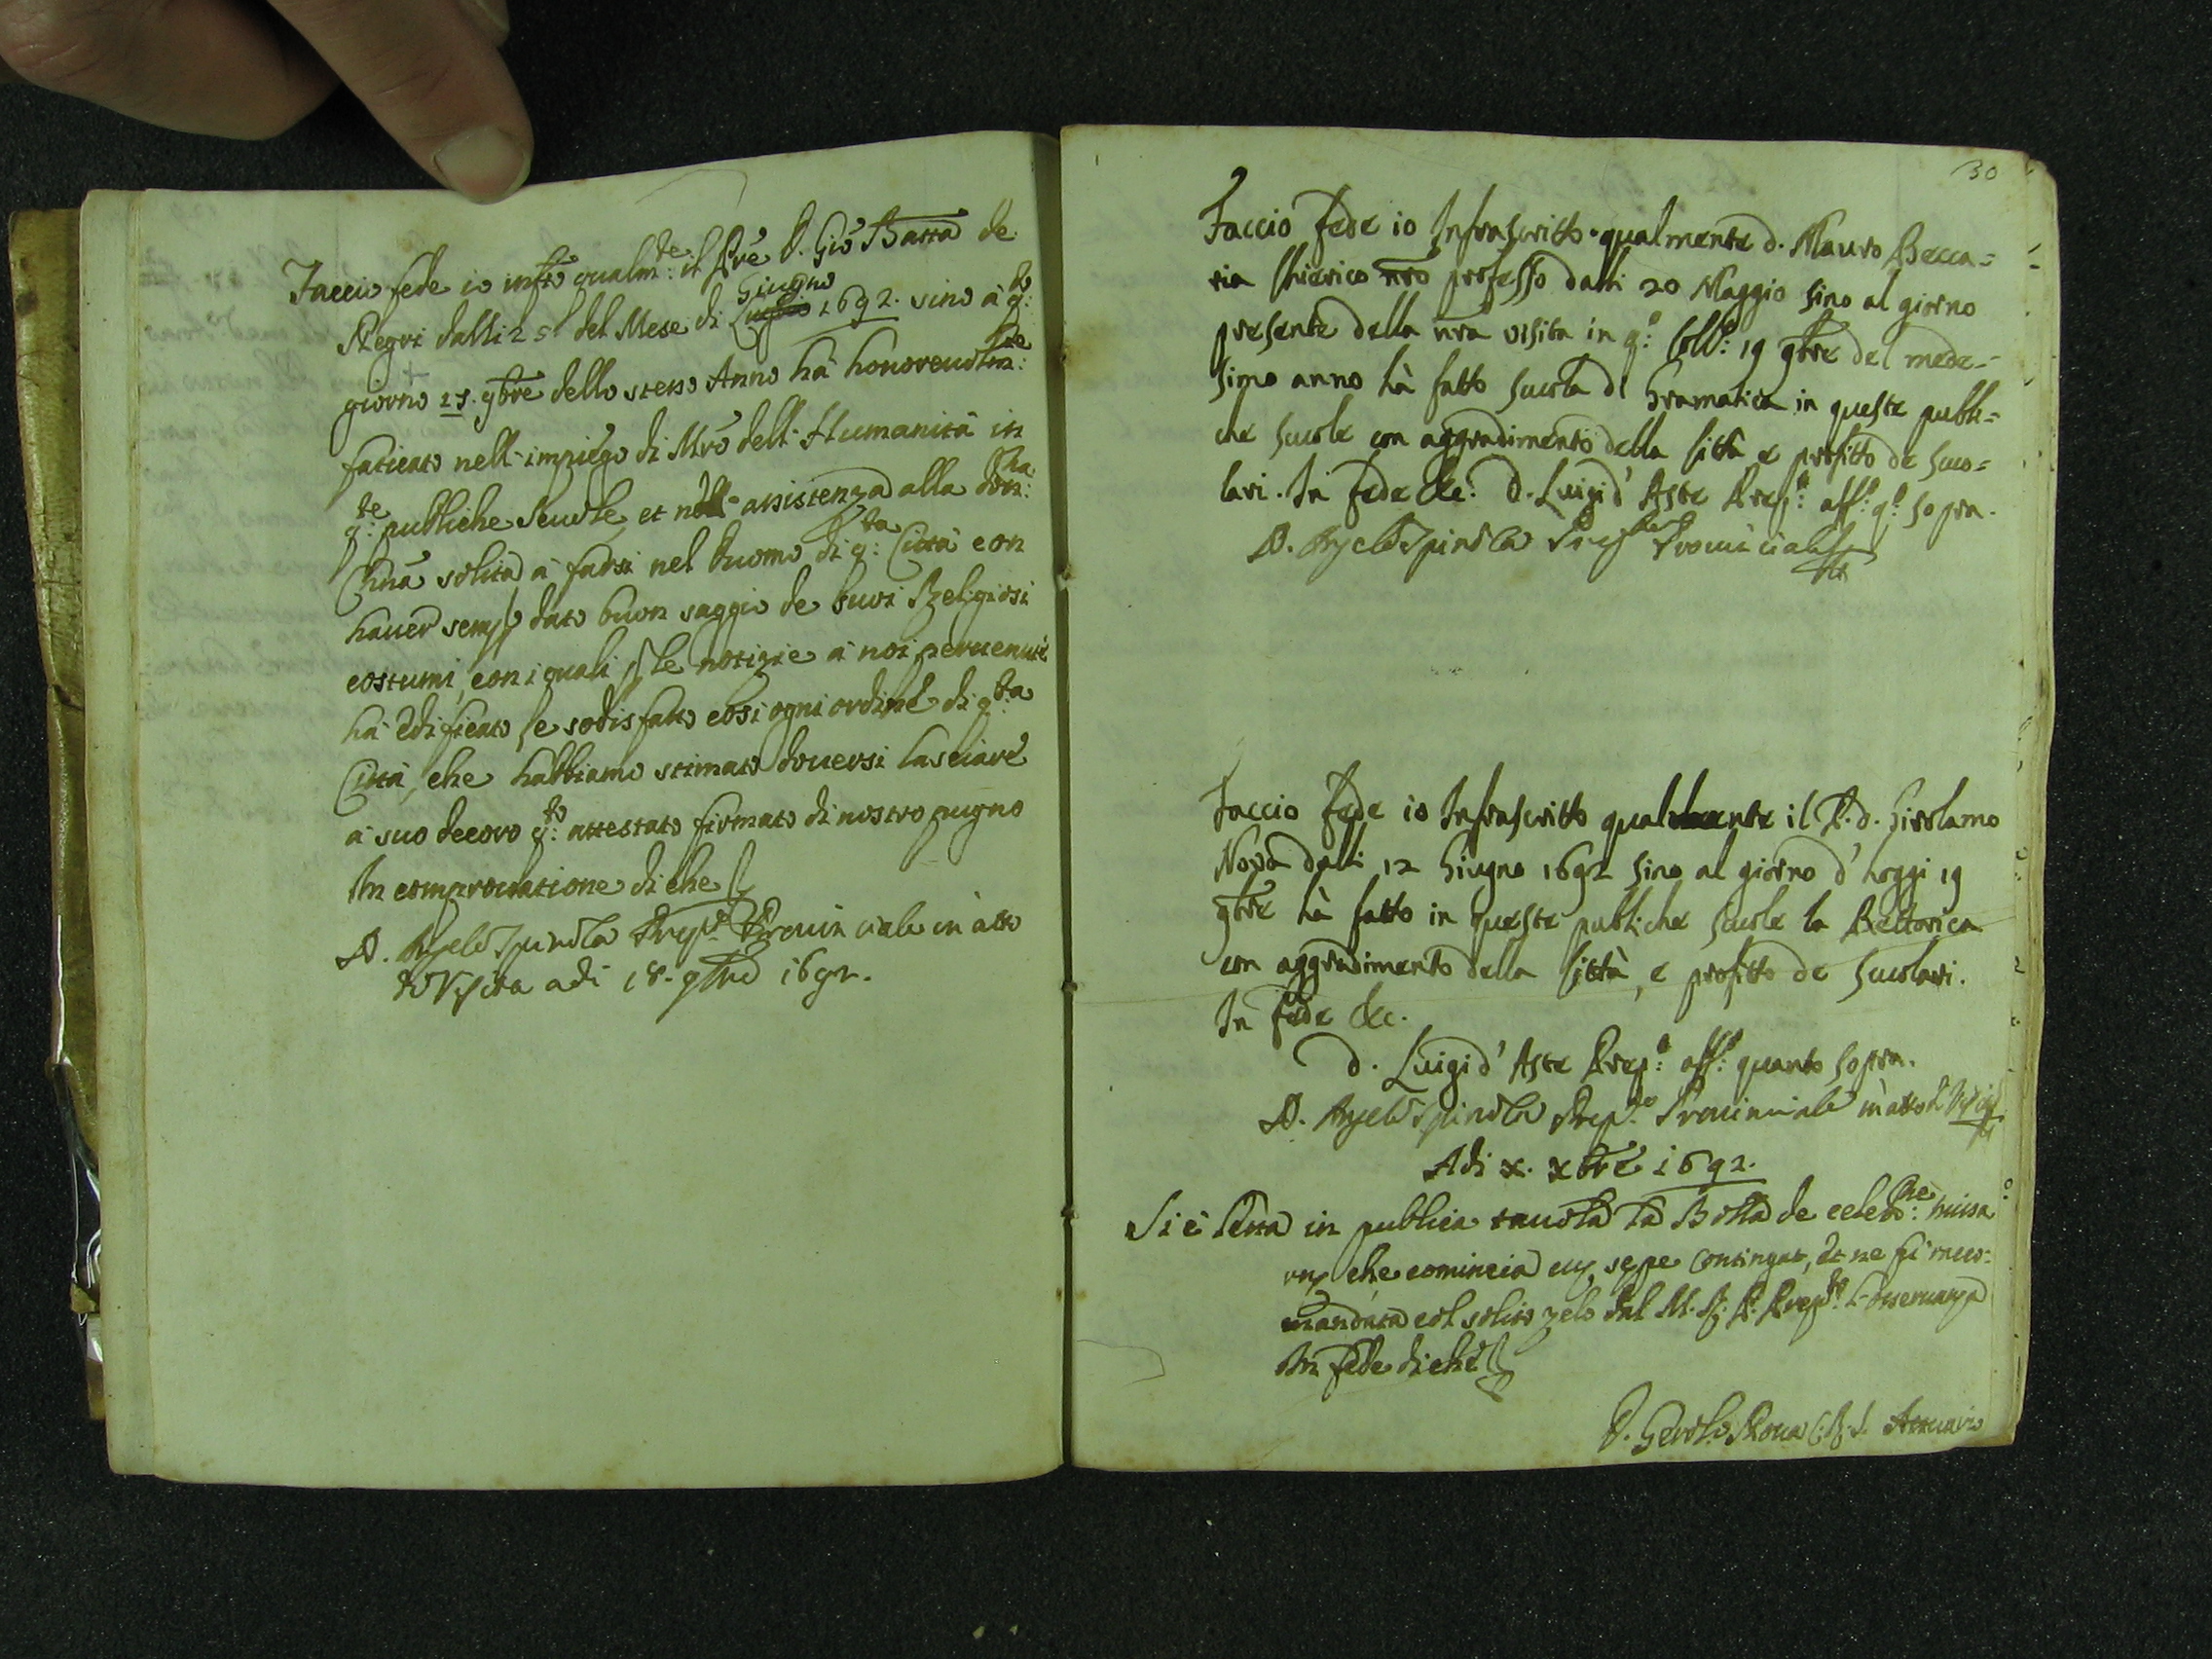 Faccio fede io infrõ qualm:te il Prẽ D. Giõ Batta de
Negri dalli 25 del Mese di Luglio Giugno 1692. sino à q:to
giorno 18. 9bre dello stesso Anno hà honorevolm:te
faticato nell'impiego di Mrõ dell'Humanità in
q:te publiche Scuole, et nell'assistenza alla Dott:na
Chnã solita à farsi nel Duomo di q:ta Città con
haver semp dato buon saggio de suoi Religiosi
costumi, con i quali p le notizie à noi pervenute
hà edificato, e sodisfatto così ogni ordine di q:ta
Città, che habbiamo stimato doversi lasciare
à suo decoro q:to attestato firmato di nostro pugno
In comprovatione di che
D. Angelo Spinola Prep.to Provinciale in atto
di Visita adi 18. 9bre 1692.
30
Faccio fede io Infrascritto qualmente d. Mauro Becca=
ria Chierico nrõ professo dalli 20 Maggio sino al giorno
presente della nrã visita in q:o Coll:o 19 9bre del mede=
simo anno hà fatto scuola di Gramatica in queste publi=
che scuole con aggradimento della Città e profitto de scuo=
lari. In fede &c. D. Luigi d'Aste Prep:o aff:o q:o sopra.
D. Angelo Spinola Prep:to Provinciale
Faccio fede io Infrascritto qualmente il P. d. Girolamo
Nova dalli 12 Giugno 1692 sino al giorno d'hoggi 19
9bre hà fatto in queste publiche scuole la Rettorica
con aggradimento della Città, e profitto de scuolari.
In fede &c.
D. Luigi d'Aste Prep:o aff:o quanto sopra.
D. Angelo Spinola Prep.to Provinciale in atto di Visita
Adi x. xbre 1692.
Si è letta in publica tavola la Bolla de celebr:ne missa
rum che comincia cum sepe contingat, et ne fù racco=
mandata col solito zelo dal M. R. P. Prep:to l'osservanza
In fede di che
D. Gerol.o Nova C. R. S. Attuario